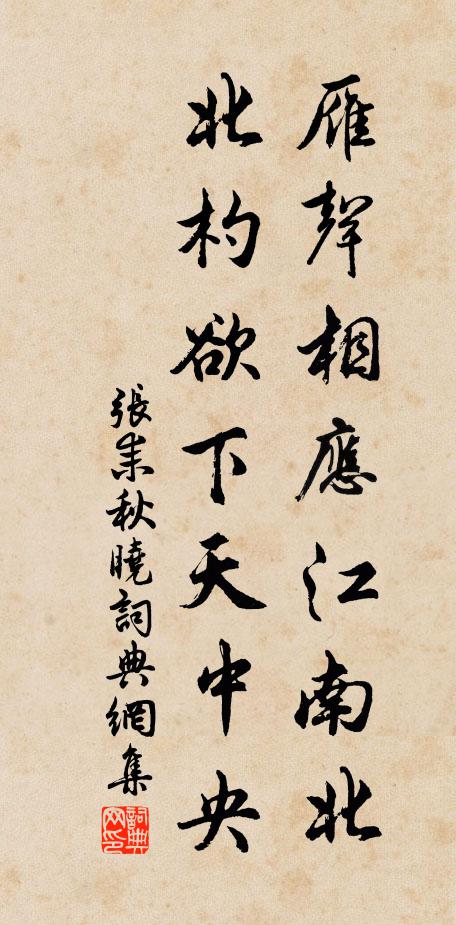 雁聲相應江南北
北杓欲下天中央
張耒秋曉詞典網集
詞典網印